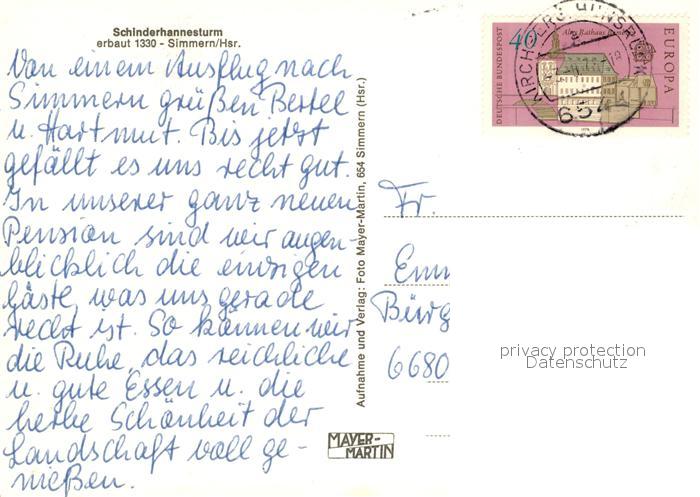 Schinderhannesturm
erbaut 1330 - Simmern/Hsr.
Von einem Ausflug nach
Simmern grüßen Bertel
u. Hartmut. Bis jetzt
gefällt es uns recht gut.
In unserer ganz neuen
Pension sind wir augen-
blicklich die einzigen
Gäste, was uns gerade
recht ist. So können wir
die Ruhe, das reichliche
u. gute Essen u. die
herbe Schönheit der
Landschaft voll ge-
nießen.
Aufnahme und Verlag: Foto Mayer-Martin, 654 Simmern (Hsr.)
MAYER-
MARTIN
DEUTSCHE BUNDESPOST
40
Altes Rathaus
EUROPA
KIRCHBERG, HUNSRÜCK
654
Fr.
Emm
Bürg
6680
privacy protection
Datenschutz